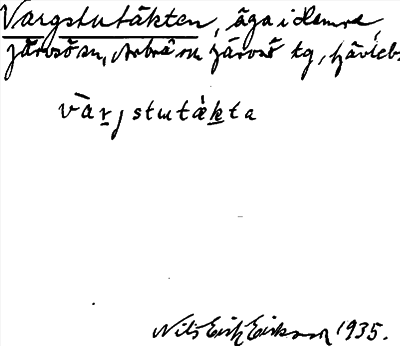 Vargstutäkten, äga i Hamre,
Järvsö sn, Arbrå sn Järvsö tg, Gävlebs
vàrjstutäkta
Nils Erik Eriksson 1935.